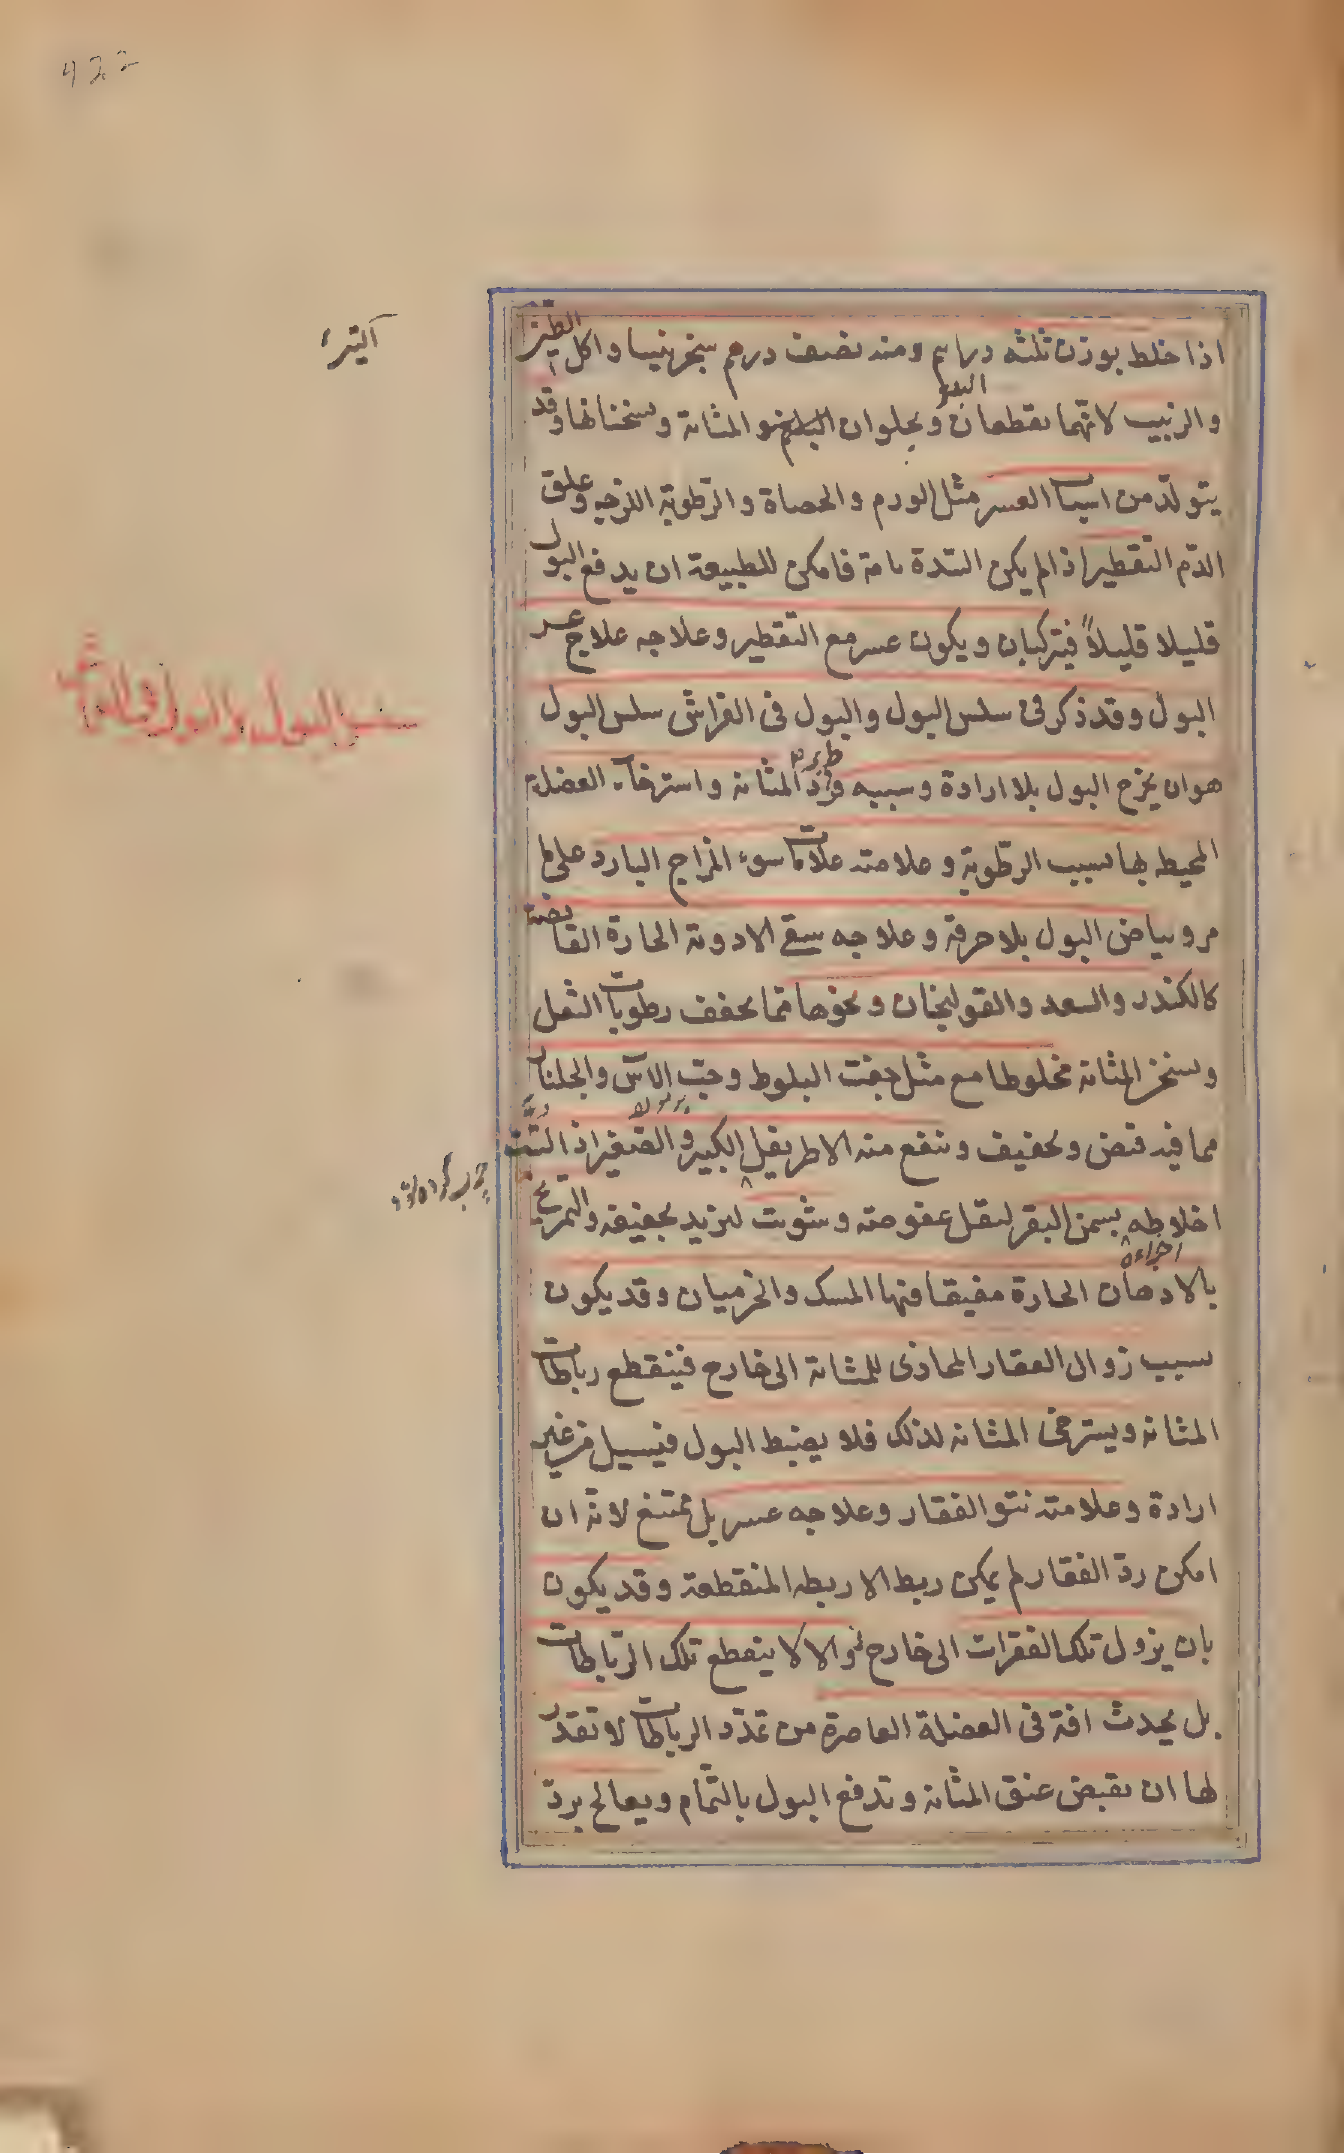 422
اذا خلط بوزن ثلثه دراهم ومنه نصف درهم سجزنيبا واكل التين
والزبيب لانهما يقطعان ويجلوان البلغم المثانة ويسخنانها وقد
يتولد من اسباب العسر مثل الورم والحصاة والرطوبة اللزجه وعلق
الدم التقطير اذا لم يكن السدة تامة فامكن للطبيعة ان يدفع البول
قليلا قليلاً فيتركبان ويكون عسر مع التقطير وعلاجه علاج عسر
البول وقد ذكر فى سلس البول والبول فى الفراش سلس البول
سلس البول والبول فى الفراش
هو ان يخرج البول بلا ارادة وسببه برد المثانة واسترخاء العضلة
المحيطه بها بسبب الرطوبة وعلامته علامات سوء المزاج البارد على ما
مر وبياض البول بلا حرقة وعلاجه سقى الادوية الحارة القابضة
كالكندر والسعد والقولنجان ونحوها مما يجفف رطوبات الثفل
ويسخن المثانة مخلوطا مع مثل جفت البلوط وحب الاس والجلنار
مما فيه قبض وتجفيف وينفع منه الاطريفل الكبير والصغير اذ التت
اخلاطه بسمن البقر ليقل عفوصته وشويت ليزيد تجفيفه والتمريخ
بالادهان الحارة مفيقا فيها المسك والخرميان وقد يكون
بسبب زوال الفقار المحاذى للمثانة الى خارج فينقطع رباطات
المثانة ويسترخى المثانة لذلك فلا يضبط البول فيسيل من غير
ارادة وعلامته نتو الفقار وعلاجه عسر بل ممتنع لانه ان
امكن رد الفقار لم يمكن ربط الاربطه المنقطعة وقد يكون
بان يزول تلك الفقرات الى خارج زوالا لا ينقطع تلك الرباطات
بل يحدث افة فى العضلة العاصرة من تمدد الرباطات لا تقدر
لها ان يقبض عنق المثانة وتدفع البول بالتمام ويعالج برد